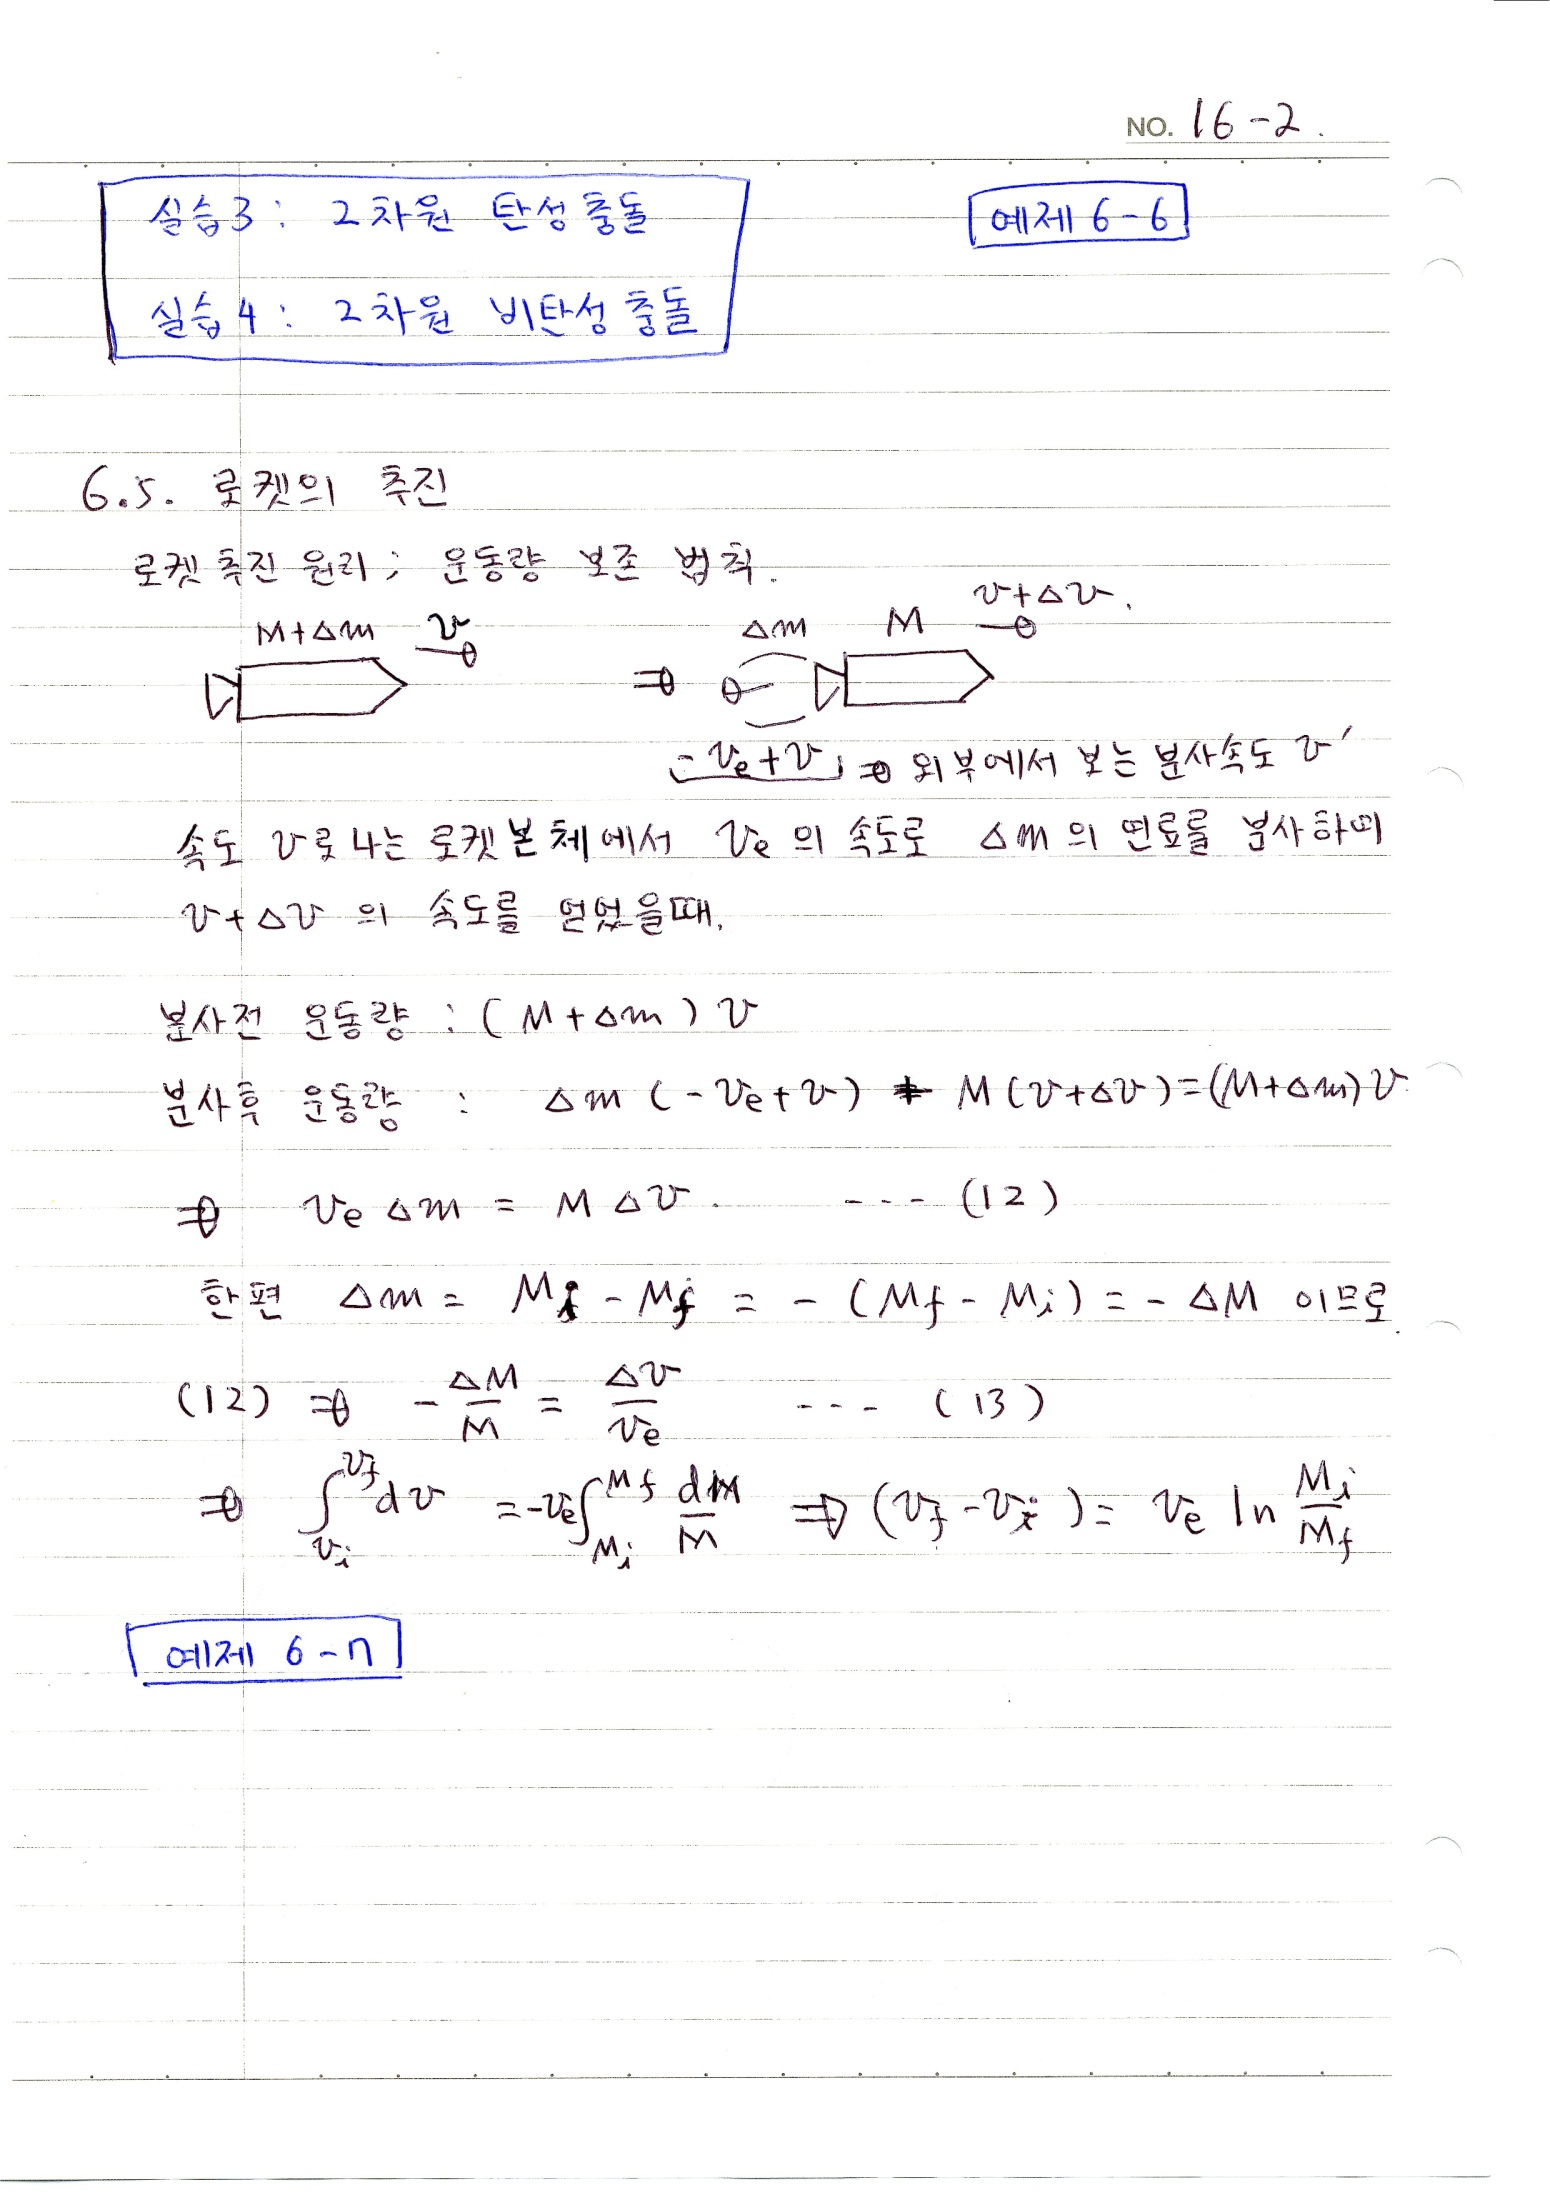 NO. 16-2.
실습3 : 2차원 탄성 충돌
예제 6-6
실습4 : 2차원 비탄성 충돌
6.5. 로켓의 추진
로켓 추진 원리 ; 운동량 보존 법칙.
M+Δm v ⇒ Δm M v+Δv.
-Ve+v ; ⇒ 외부에서 보는 분사속도 v'
속도 v로 나는 로켓 본체에서 Ve의 속도로 Δm의 연료를 분사하며
v+Δv 의 속도를 얻었을때,
분사전 운동량 : (M+Δm) v
분사후 운동량 : Δm (-Ve+v) + M(v+Δv)=(M+Δm)v
⇒ Ve Δm = M Δv. --- (12)
한편 Δm = Mi - Mf = - (Mf - Mi) = - ΔM 이므로
(12) ⇒ - ΔM/M = Δv/Ve --- (13)
⇒ ∫_{vi}^{vf} dv = -Ve∫_{Mi}^{Mf} dM/M ⇒ (vf - vi) = Ve ln Mi/Mf
예제 6-7